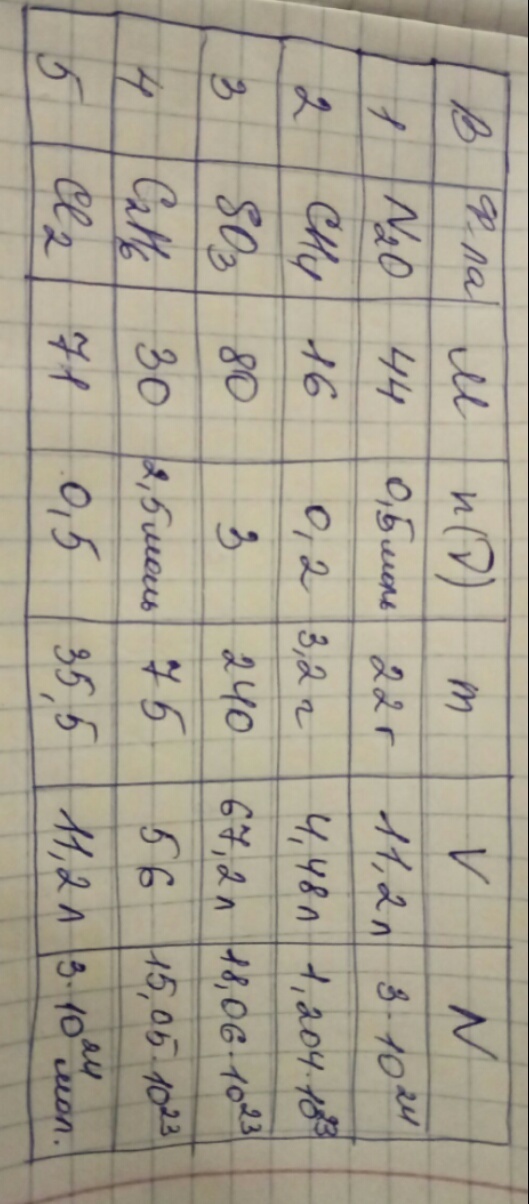 В ф-ла M n(ν) m V N
1 N₂O 44 0,5 моль 22 г 11,2 л 3·10²⁴
2 CH₄ 16 0,2 3,2 г 4,48 л 1,204·10²³
3 SO₃ 80 3 240 67,2 л 18,06·10²³
4 C₂H₆ 30 2,5 моль 75 56 15,05·10²³
5 Cl₂ 71 0,5 35,5 11,2 л 3·10²⁴ мол.